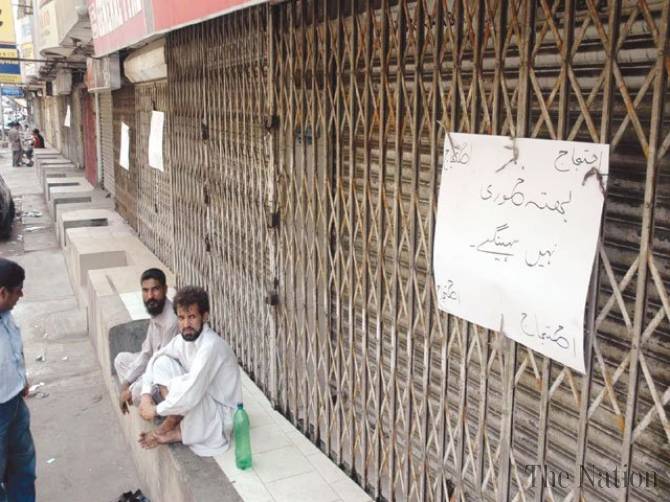 احتجاج احتجاج
بھتہ خوری
نہیں سہینگے۔
احتجاج
احتجاج
The Nation